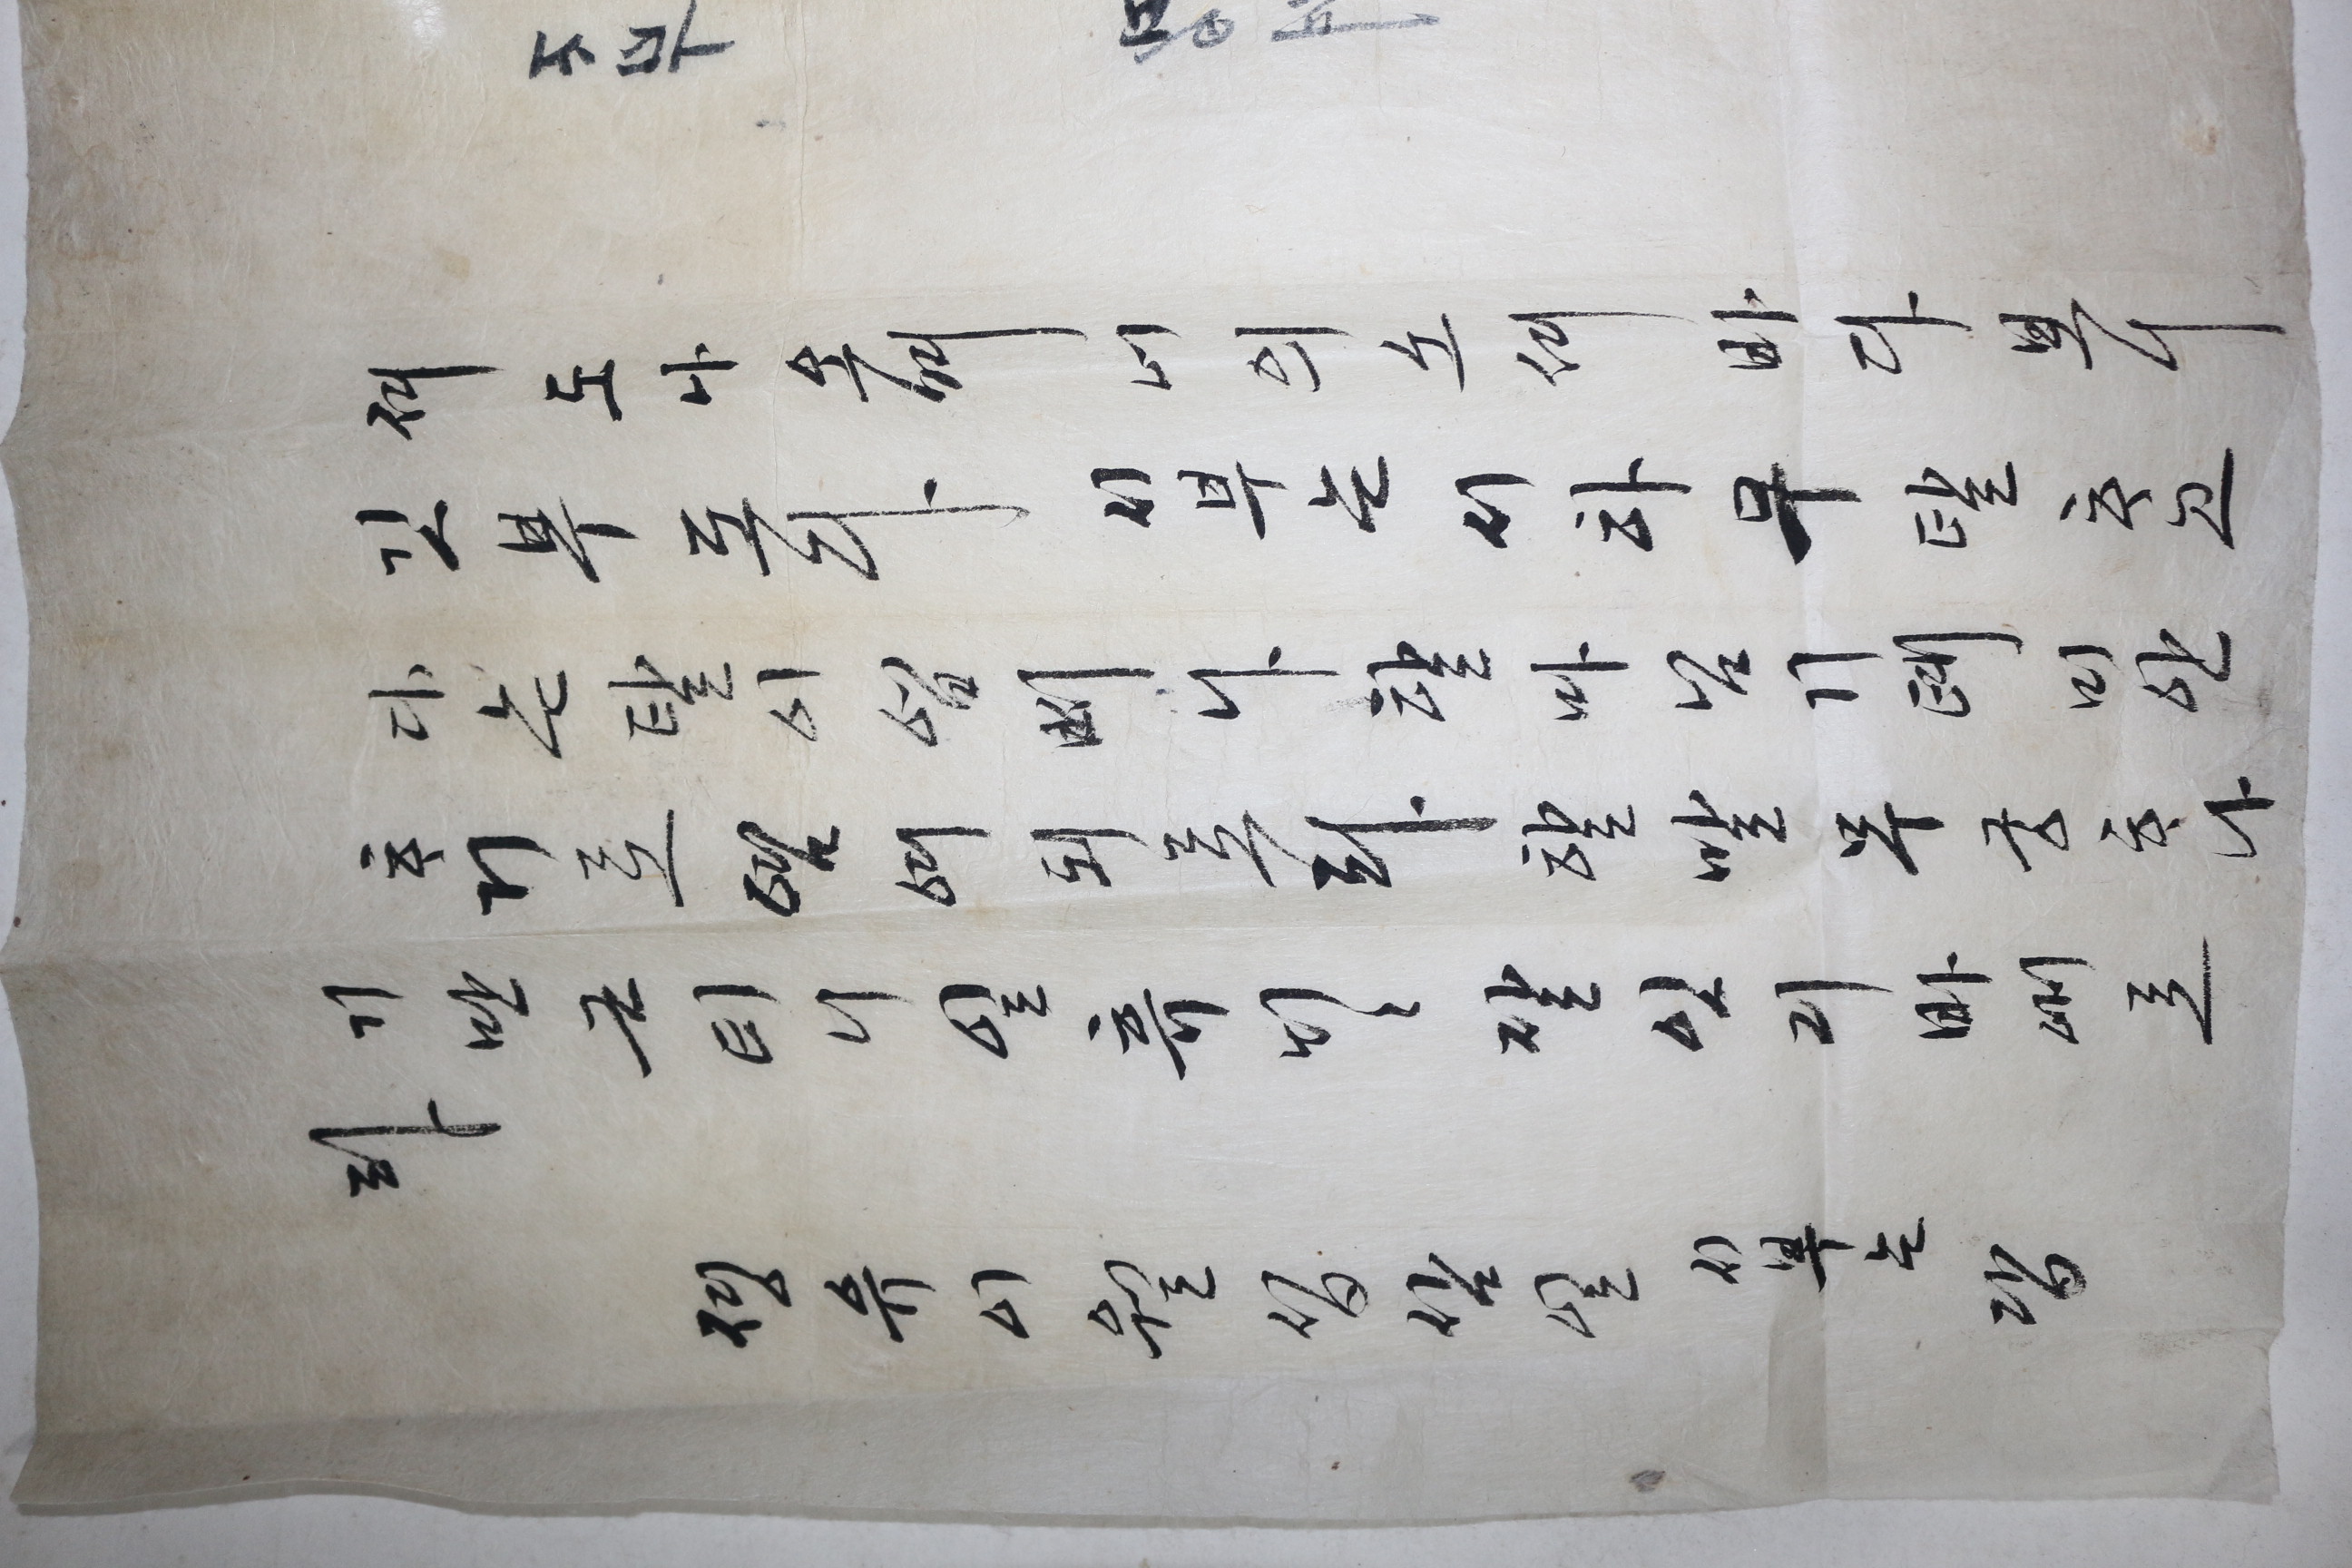 져도나오며너의소셔바다보니
깃부도다 시부는시하무탈ᄒᆞ고
다는탈이업 나할마님기톄미안
ᄒᆞ기로염여되로라할말무궁ᄒᆞ나
기만근티니일휴ᄂᆡ〻잘잇기바 로
라
졍유이월십삼일 시부는 답